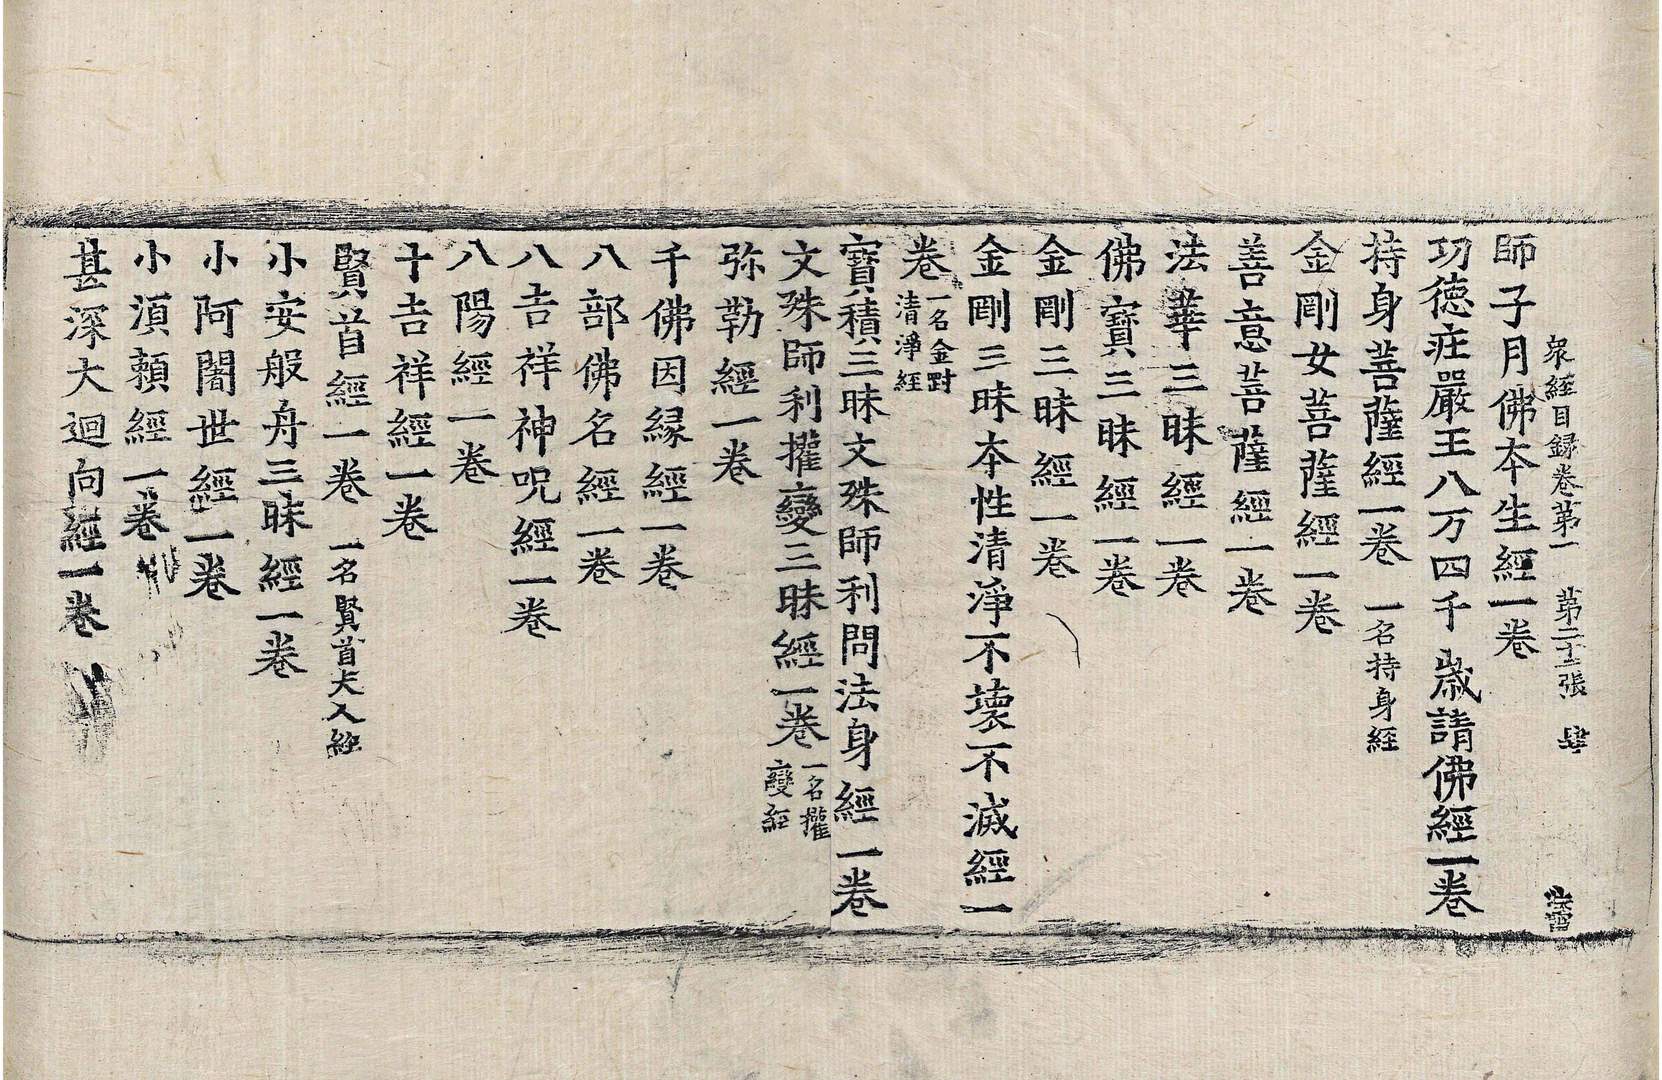 衆經目録卷第一 第二十二張 肆
師子月佛本生經一卷
功德莊嚴王八万四千歳請佛經一卷
持身菩薩經一卷 一名持身經
金剛女菩薩經一卷
善意菩薩經一卷
法華三昧經一卷
佛寶三昧經一卷
金剛三昧經一卷
金剛三昧本性清淨不壞不滅經一
卷 一名金對
清淨經
寶積三昧文殊師利問法身經一卷
文殊師利攉變三昧經一卷 一名攉
變經
弥勒經一卷
千佛因縁經一卷
八部佛名經一卷
八吉祥神呪經一卷
八陽經一卷
十吉祥經一卷
賢首經一卷 一名賢首夫人經
小安般舟三昧經一卷
小阿闍世經一卷
小湏賴經一卷
甚深大迴向經一卷